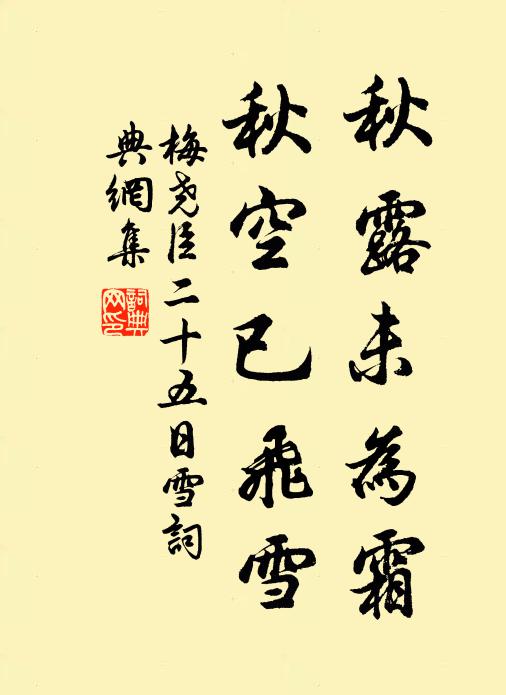 秋露未為霜
秋空已飛雪
梅堯臣二十五日雪詞
典網集
詞典
网印